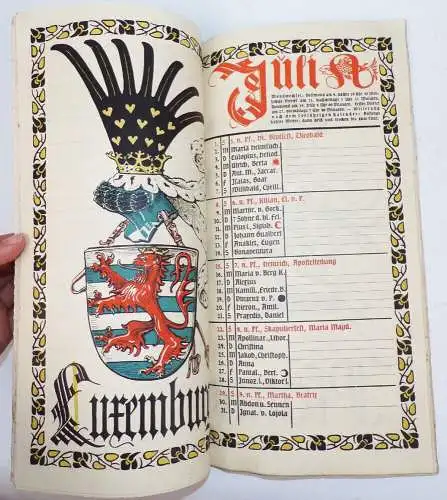 Luxemburg
Juli
1. S 3. n. Pf., Bl. Christi, Theobald
2. M Maria Heimsuch.
3. D Eulogius, Heliod.
4. M Ulrich, Berta
5. D Ant. M., Zaccar.
6. F Isaias, Goar
7. S Willibald, Cyrill.
8. S 4. n. Pf., Kilian, El. v. P.
9. M Martyr. v. Gork.
10. D 7 Söhne d. hl. Fel.
11. M Pius I., Sigisb.
12. D Johann Gualbert
13. F Anaklet, Eugen
14. S Bonaventura
15. S 5. n. Pf., Heinrich, Apostelteilung
16. M Maria v. Berg K.
17. D Alexius
18. M Kamill., Friedr. B.
19. D Vinzenz v. P.
20. F Hieron., Amil.
21. S Praxedis, Daniel
22. S 6. n. Pf., Skapulierfest, Maria Magd.
23. M Apollinar., Libor.
24. D Christina
25. M Jakob., Christoph.
26. D Anna
27. F Pantal., Bert.
28. S Innoz. I., Viktor I.
29. S 7. n. Pf., Martha, Beatrix
30. M Abdon u. Sennen
31. D Ignat. v. Loyola